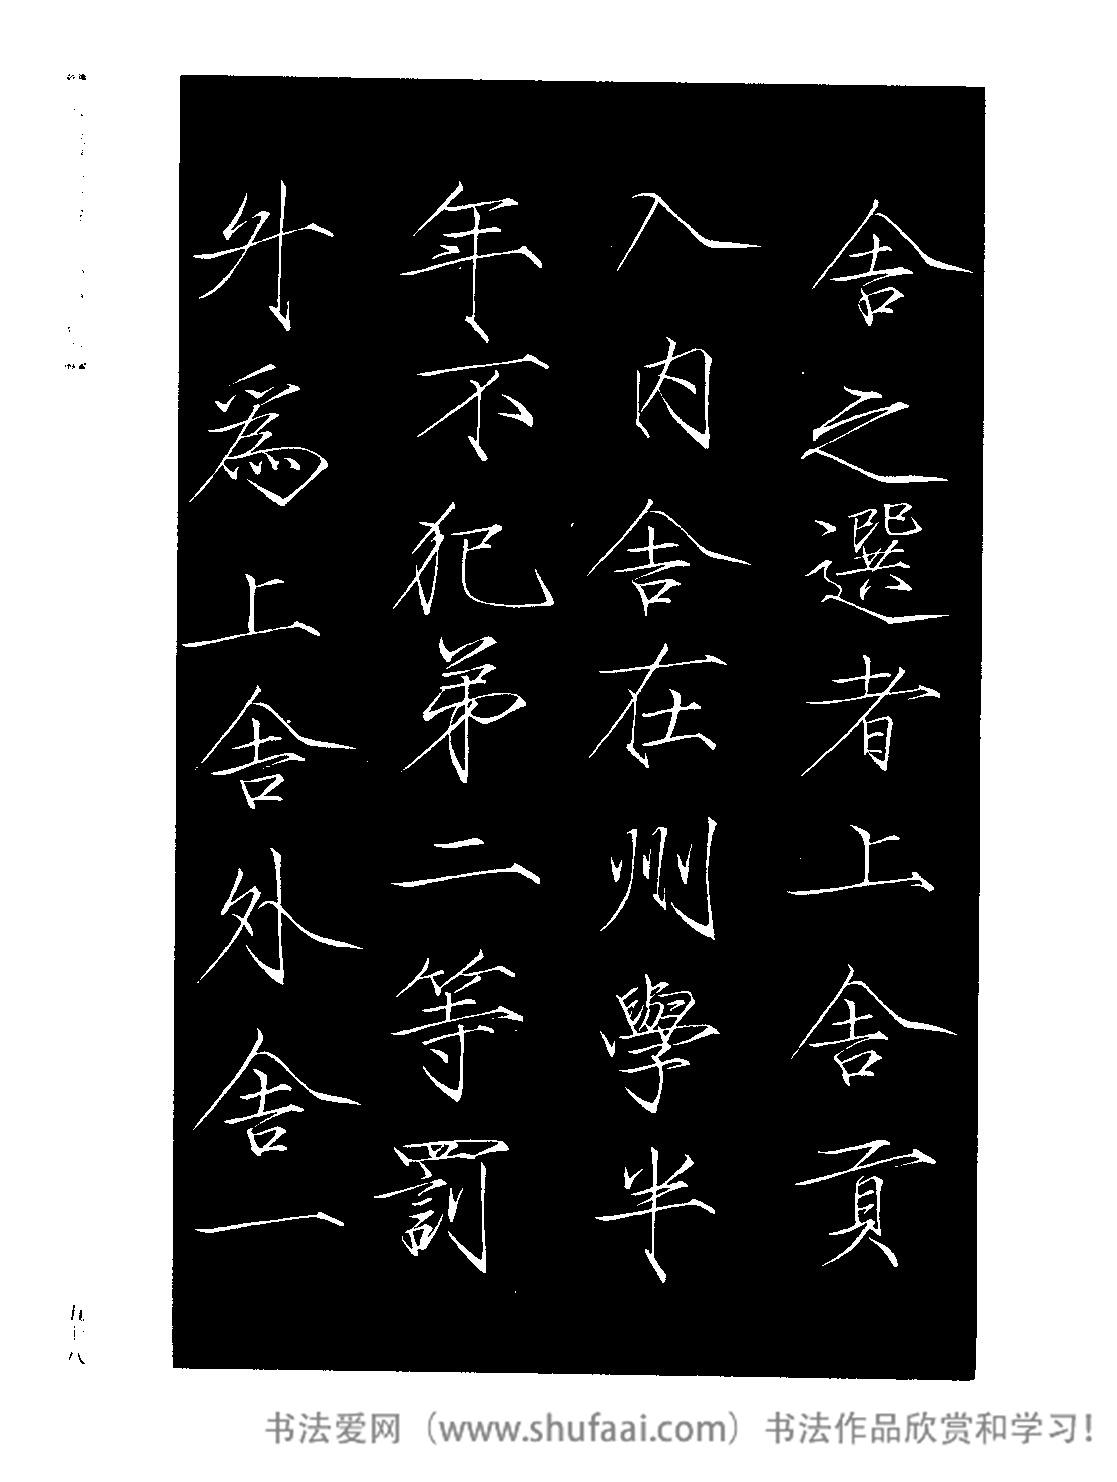 舍之選者上舍貢
入内舍在州學半
年不犯弟二等罰
升爲上舍外舍一
五十八
书法爱网（www.shufaai.com）书法作品欣赏和学习！